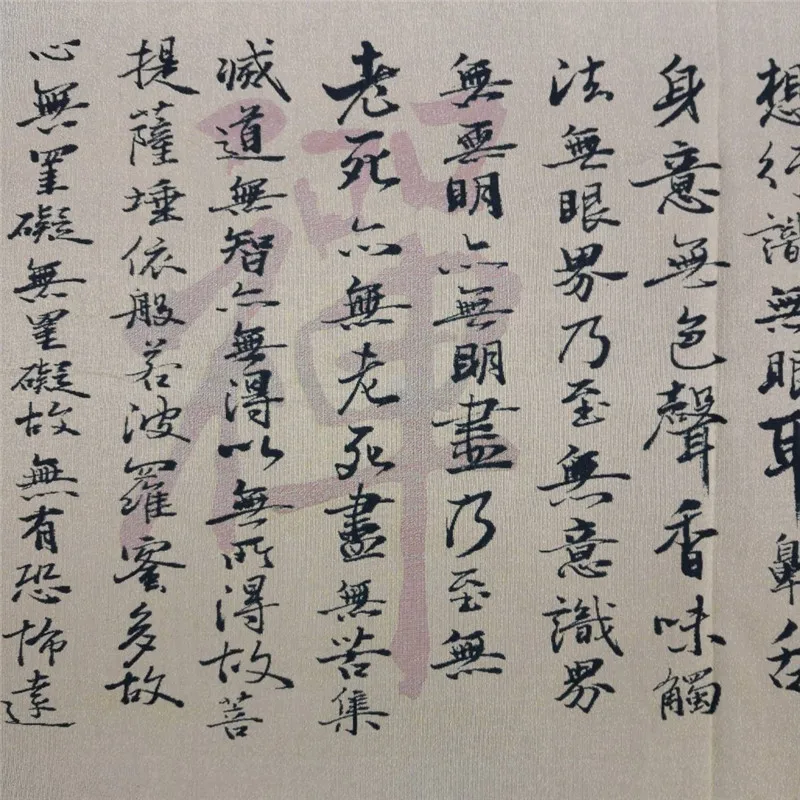 想行識無眼耳鼻舌
身意無色聲香味觸
法無眼界乃至無意識界
無無明亦無明盡乃至無
老死亦無老死盡無苦集
滅道無智亦無得以無所得故菩
提薩埵依般若波羅蜜多故
心無罣礙無罣礙故無有恐怖遠
禪